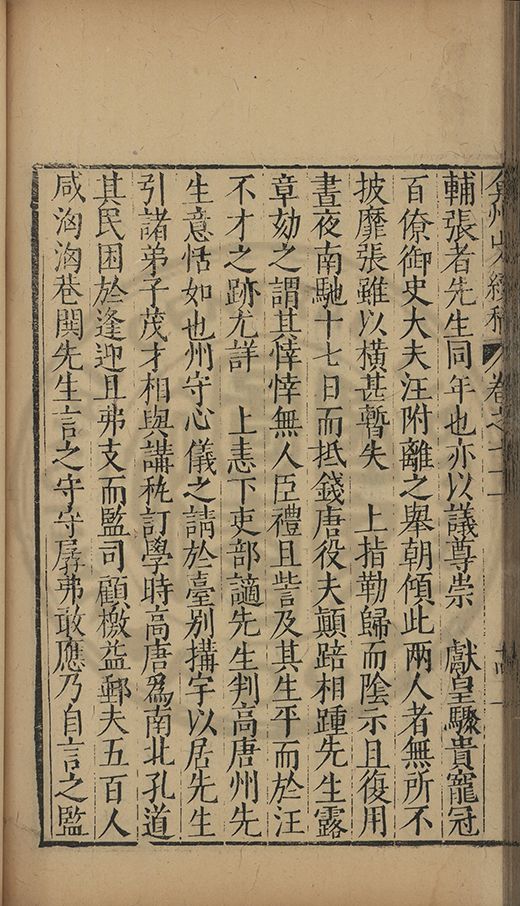 弇州山人續稿 卷之七十一 十四
輔張者先生同年也亦以議尊崇 獻皇驟貴寵冠
百僚御史大夫汪附離之舉朝傾此兩人者無所不
披靡張雖以橫甚暫失 上指勒歸而陰示且復用
晝夜南馳十七日而抵錢唐役夫顛踣相踵先生露
章劾之謂其悻悻無人臣禮且訾及其生平而於汪
不才之跡尤詳 上恚下吏部謫先生判高唐州先
生意恬如也州守心儀之請於臺別搆宇以居先生
引諸弟子茂才相與講秇訂學時高唐爲南北孔道
其民困於逢迎且弗支而監司顧檄益郵夫五百人
咸洶洶巷閧先生言之守守孱弗敢應乃自言之監